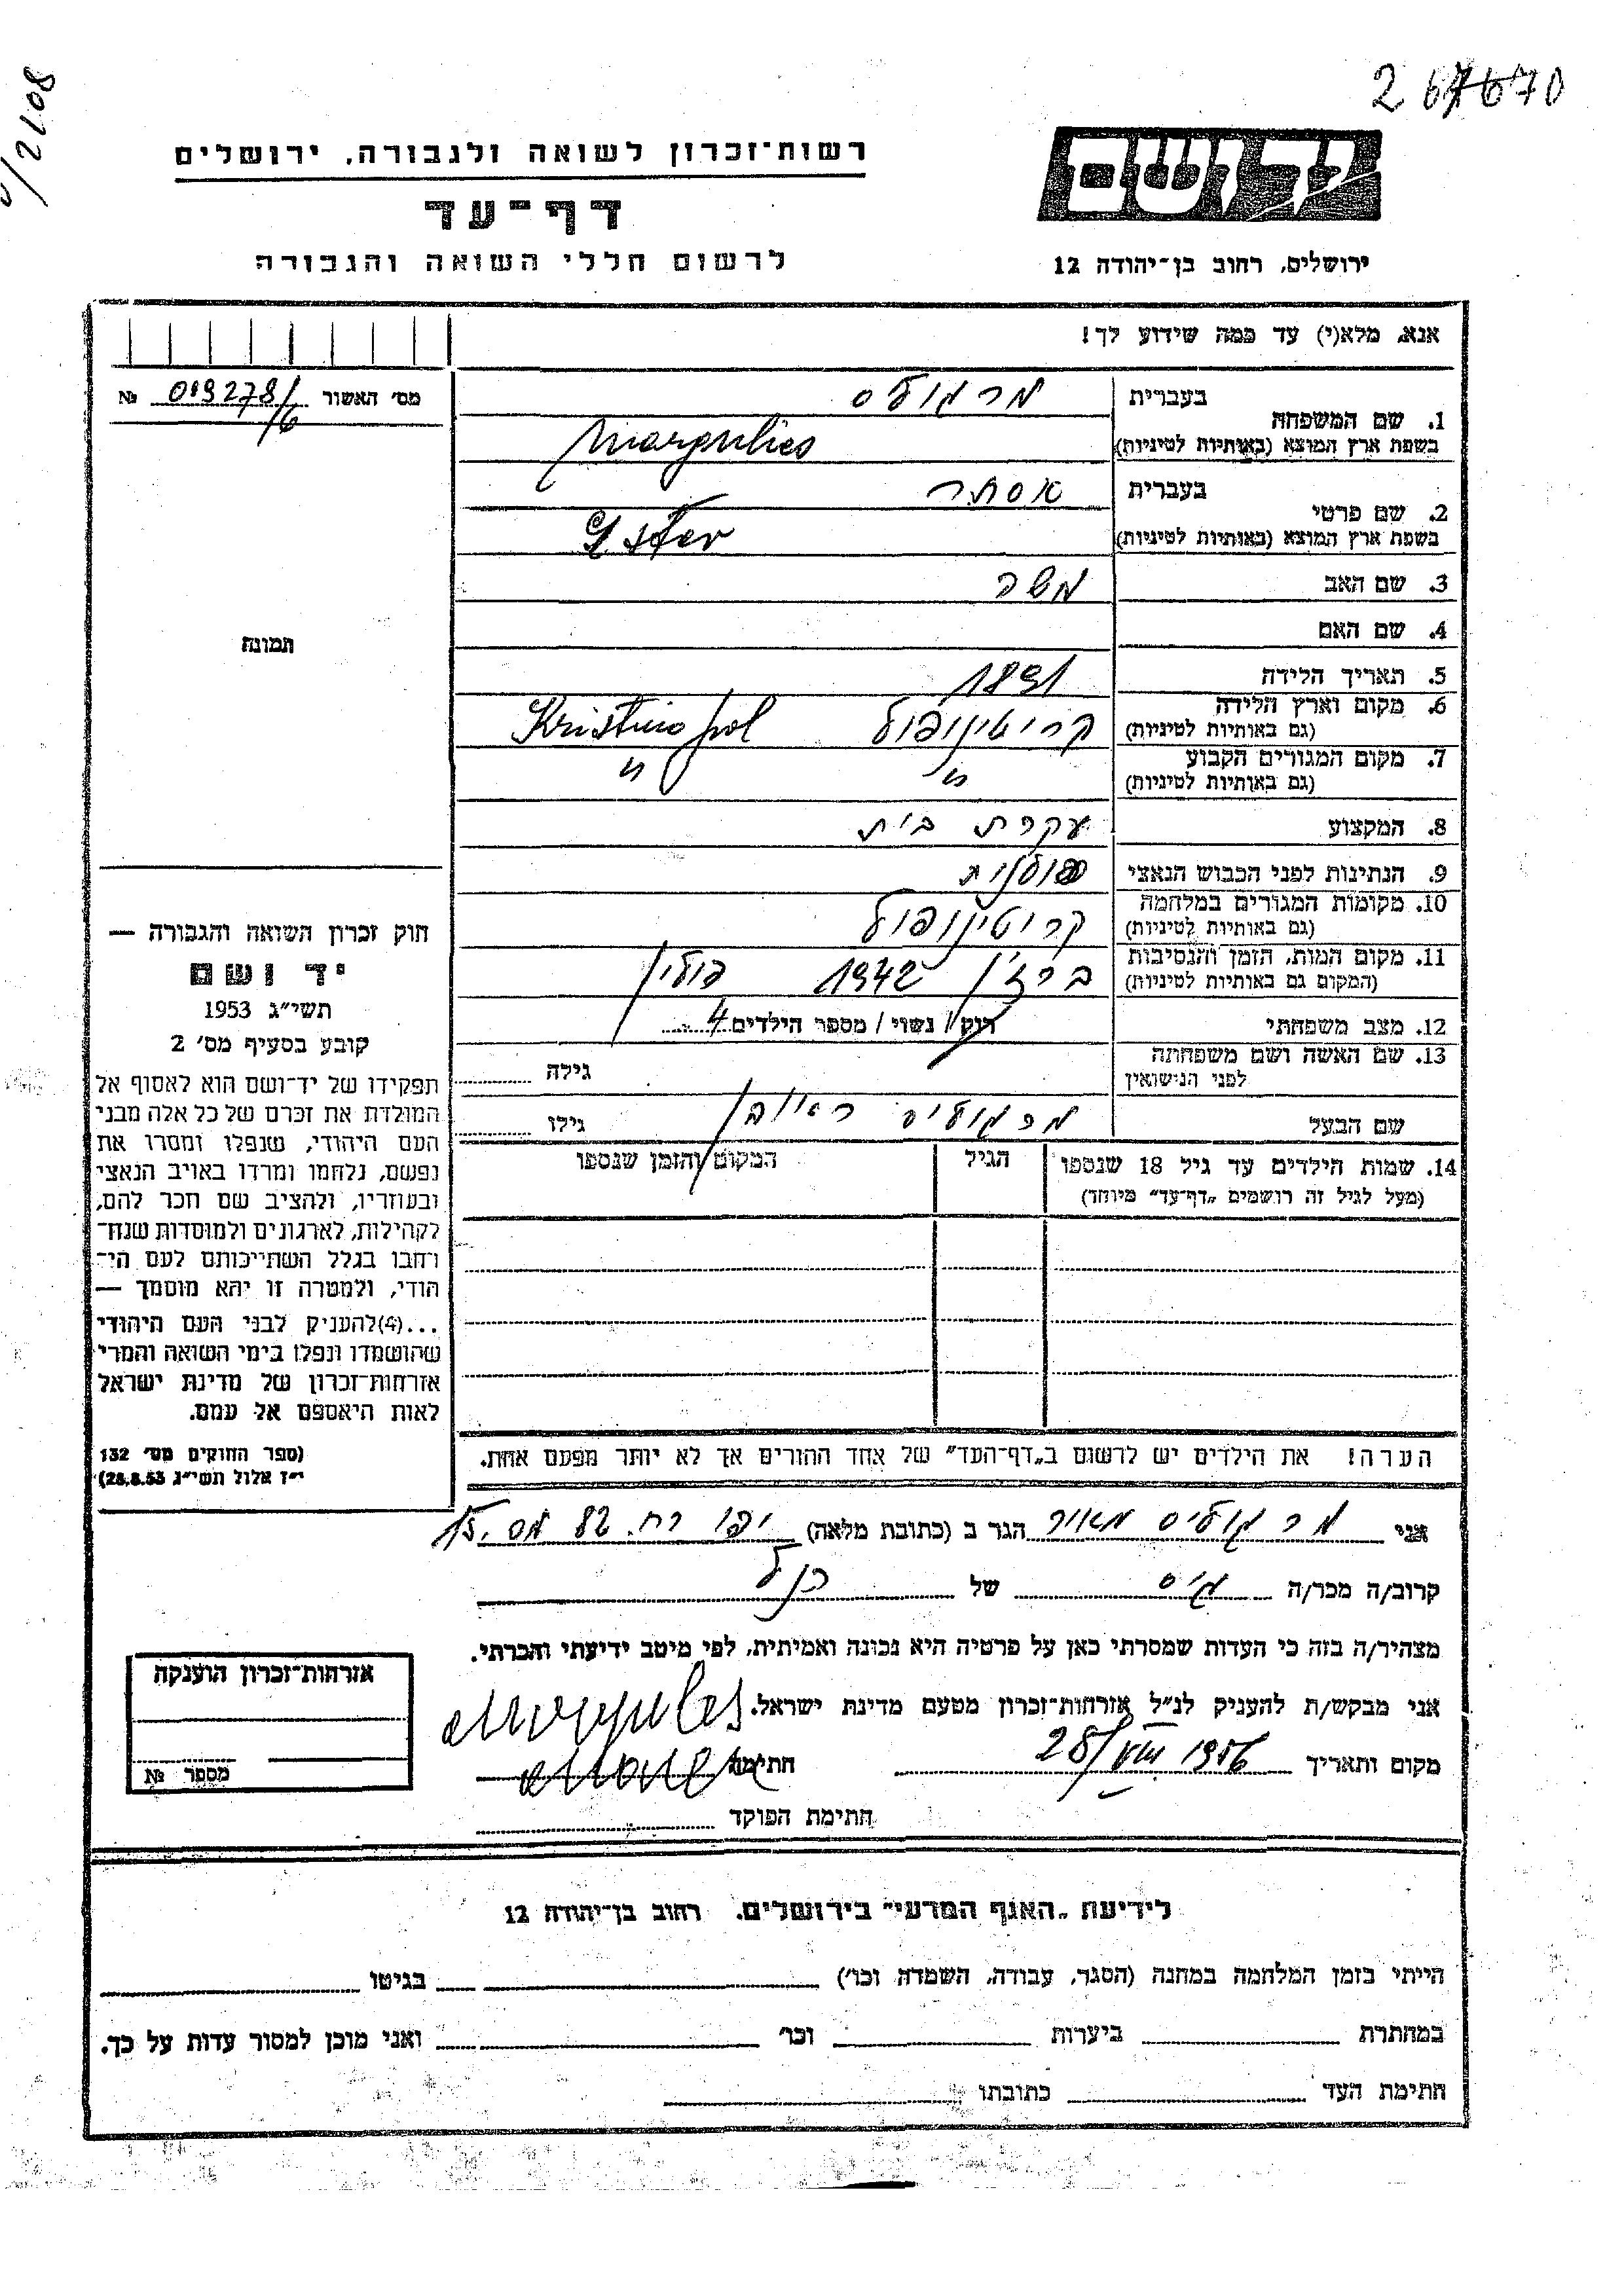 267670
0/2108
רשות־זכרון לשואה ולגבורה, ירושלים
דף־עד
לרשום חללי השואה והגבורה
יד ושם
ירושלים, רחוב בן־יהודה 12
אנא, מלא(י) עד כמה שידוע לך!
מס׳ האשור 019278/6 №
1. שם המשפחה בעברית מרגוליס
בשפת ארץ המוצא (באותיות לטיניות) Margulies
2. שם פרטי בעברית אסתר
בשפת ארץ המוצא (באותיות לטיניות) Ester
3. שם האב משה
4. שם האם
תמונה
5. תאריך הלידה 1891
6. מקום וארץ הלידה (גם באותיות לטיניות) קריסטינופול Kristinopol
7. מקום המגורים הקבוע (גם באותיות לטיניות) " "
8. המקצוע עקרת בית
9. הנתינות לפני הכבוש הנאצי פולנית
10. מקומות המגורים במלחמה (גם באותיות לטיניות) קריסטינופול
11. מקום המות, הזמן והנסיבות (המקום גם באותיות לטיניות) 1942 פולין
12. מצב משפחתי רוק / נשוי / מספר הילדים 4
13. שם האשה ושם משפחתה לפני הנישואין גילה
שם הבעל מרגוליס ראובן גילו
14. שמות הילדים עד גיל 18 שנספו הגיל המקום והזמן שנספו
(מעל לגיל זה רושמים „דף־עד” מיוחד)
חוק זכרון השואה והגבורה —
יד ושם
תשי״ג 1953
קובע בסעיף מס׳ 2
תפקידו של יד־ושם הוא לאסוף אל
המולדת את זכרם של כל אלה מבני
העם היהודי, שנפלו ומסרו את
נפשם, נלחמו ומרדו באויב הנאצי
ובעוזריו, ולהציב שם וזכר להם,
לקהילות, לארגונים ולמוסדות שנח־
רבו בגלל השתייכותם לעם הי־
הודי, ולמטרה זו יהא מוסמך —
...(4)להעניק לבני העם היהודי
שהושמדו ונפלו בימי השואה והמרי
אזרחות־זכרון של מדינת ישראל
לאות היאספם אל עמם.
(ספר החוקים מס׳ 132
י״ז אלול תשי״ג 28.8.53)
הערה! את הילדים יש לרשום ב„דף־העד” של אחד ההורים אך לא יותר מפעם אחת.
אני מרגוליס מאיר הגר ב (כתובת מלאה) יפו רח. 82 מס. 15
קרוב/ה מכר/ה גיס של הנ״ל
מצהיר/ה בזה כי העדות שמסרתי כאן על פרטיה היא נכונה ואמיתית, לפי מיטב ידיעתי והכרתי.
אני מבקש/ת להעניק לנ״ל אזרחות־זכרון מטעם מדינת ישראל.
מקום ותאריך 28/VIII 1956 חתימה
חתימת הפוקד
אזרחות־זכרון הוענקה
מספר №
לידיעת „האגף המדעי” בירושלים, רחוב בן־יהודה 12
הייתי בזמן המלחמה במחנה (הסגר, עבודה, השמדה וכו׳) בגיטו
במחתרת ביערות וכו׳ ואני מוכן למסור עדות על כך.
חתימת העד כתובתו